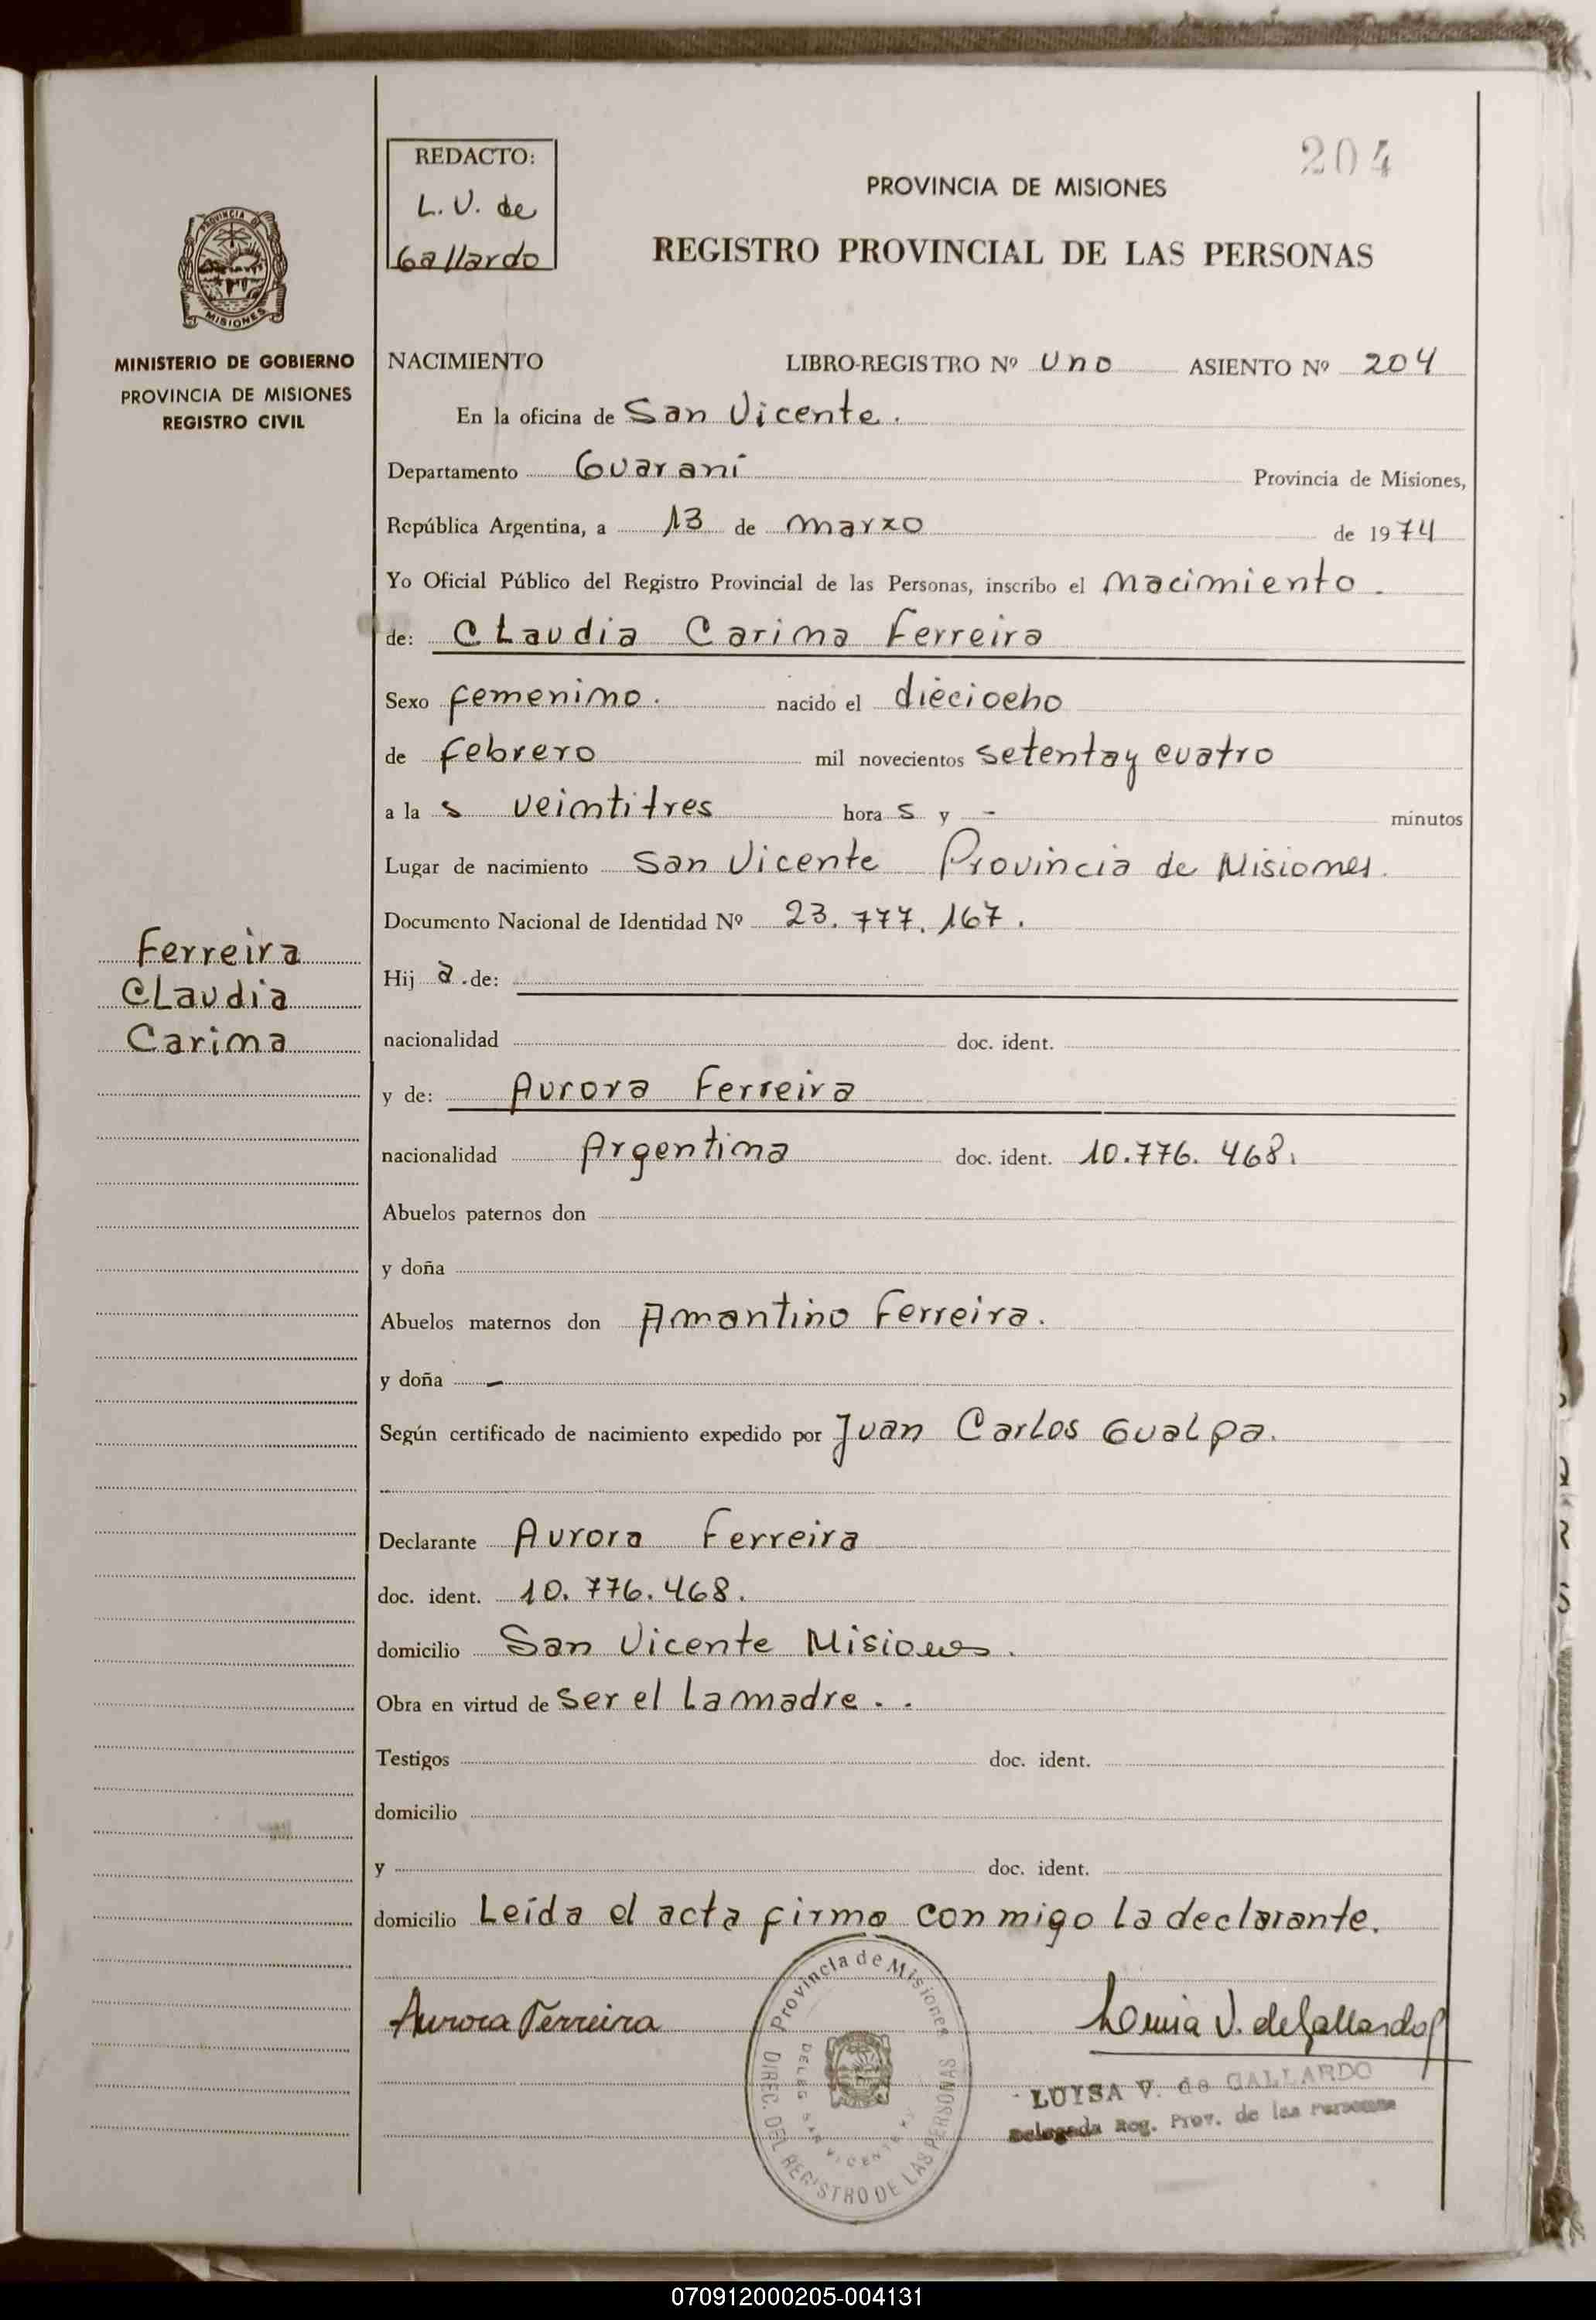 204
REDACTO:
L. V. de
Gallardo
PROVINCIA DE MISIONES
REGISTRO PROVINCIAL DE LAS PERSONAS
PROVINCIA DE
MISIONES
MINISTERIO DE GOBIERNO
PROVINCIA DE MISIONES
REGISTRO CIVIL
NACIMIENTO LIBRO-REGISTRO Nº Uno ASIENTO Nº 204
En la oficina de San Vicente.
Departamento Guaraní Provincia de Misiones,
República Argentina, a 13 de marzo de 1974
Yo Oficial Público del Registro Provincial de las Personas, inscribo el nacimiento.
de: Claudia Carina Ferreira
Sexo femenino. nacido el dieciocho
de febrero mil novecientos setenta y cuatro
a la s veintitres hora s y - minutos
Lugar de nacimiento San Vicente Provincia de Misiones.
Documento Nacional de Identidad Nº 23.777.167.
Ferreira
Claudia
Carina
Hij a. de:
nacionalidad doc. ident.
y de: Aurora Ferreira
nacionalidad Argentina doc. ident. 10.776.468.
Abuelos paternos don
y doña
Abuelos maternos don Amantino Ferreira.
y doña -
Según certificado de nacimiento expedido por Juan Carlos Gualpa.
Declarante Aurora Ferreira
doc. ident. 10.776.468.
domicilio San Vicente Misiones.
Obra en virtud de ser el la madre..
Testigos doc. ident.
domicilio
y doc. ident.
domicilio Leída el acta firma conmigo la declarante.
Aurora Ferreira
Provincia de Misiones
DIREC. DEL REGISTRO DE LAS PERSONAS
DELEG SAN VICENTE
Luisa V. de Gallardo
LUISA V. de GALLARDO
Delegada Reg. Prov. de las Personas
070912000205-004131